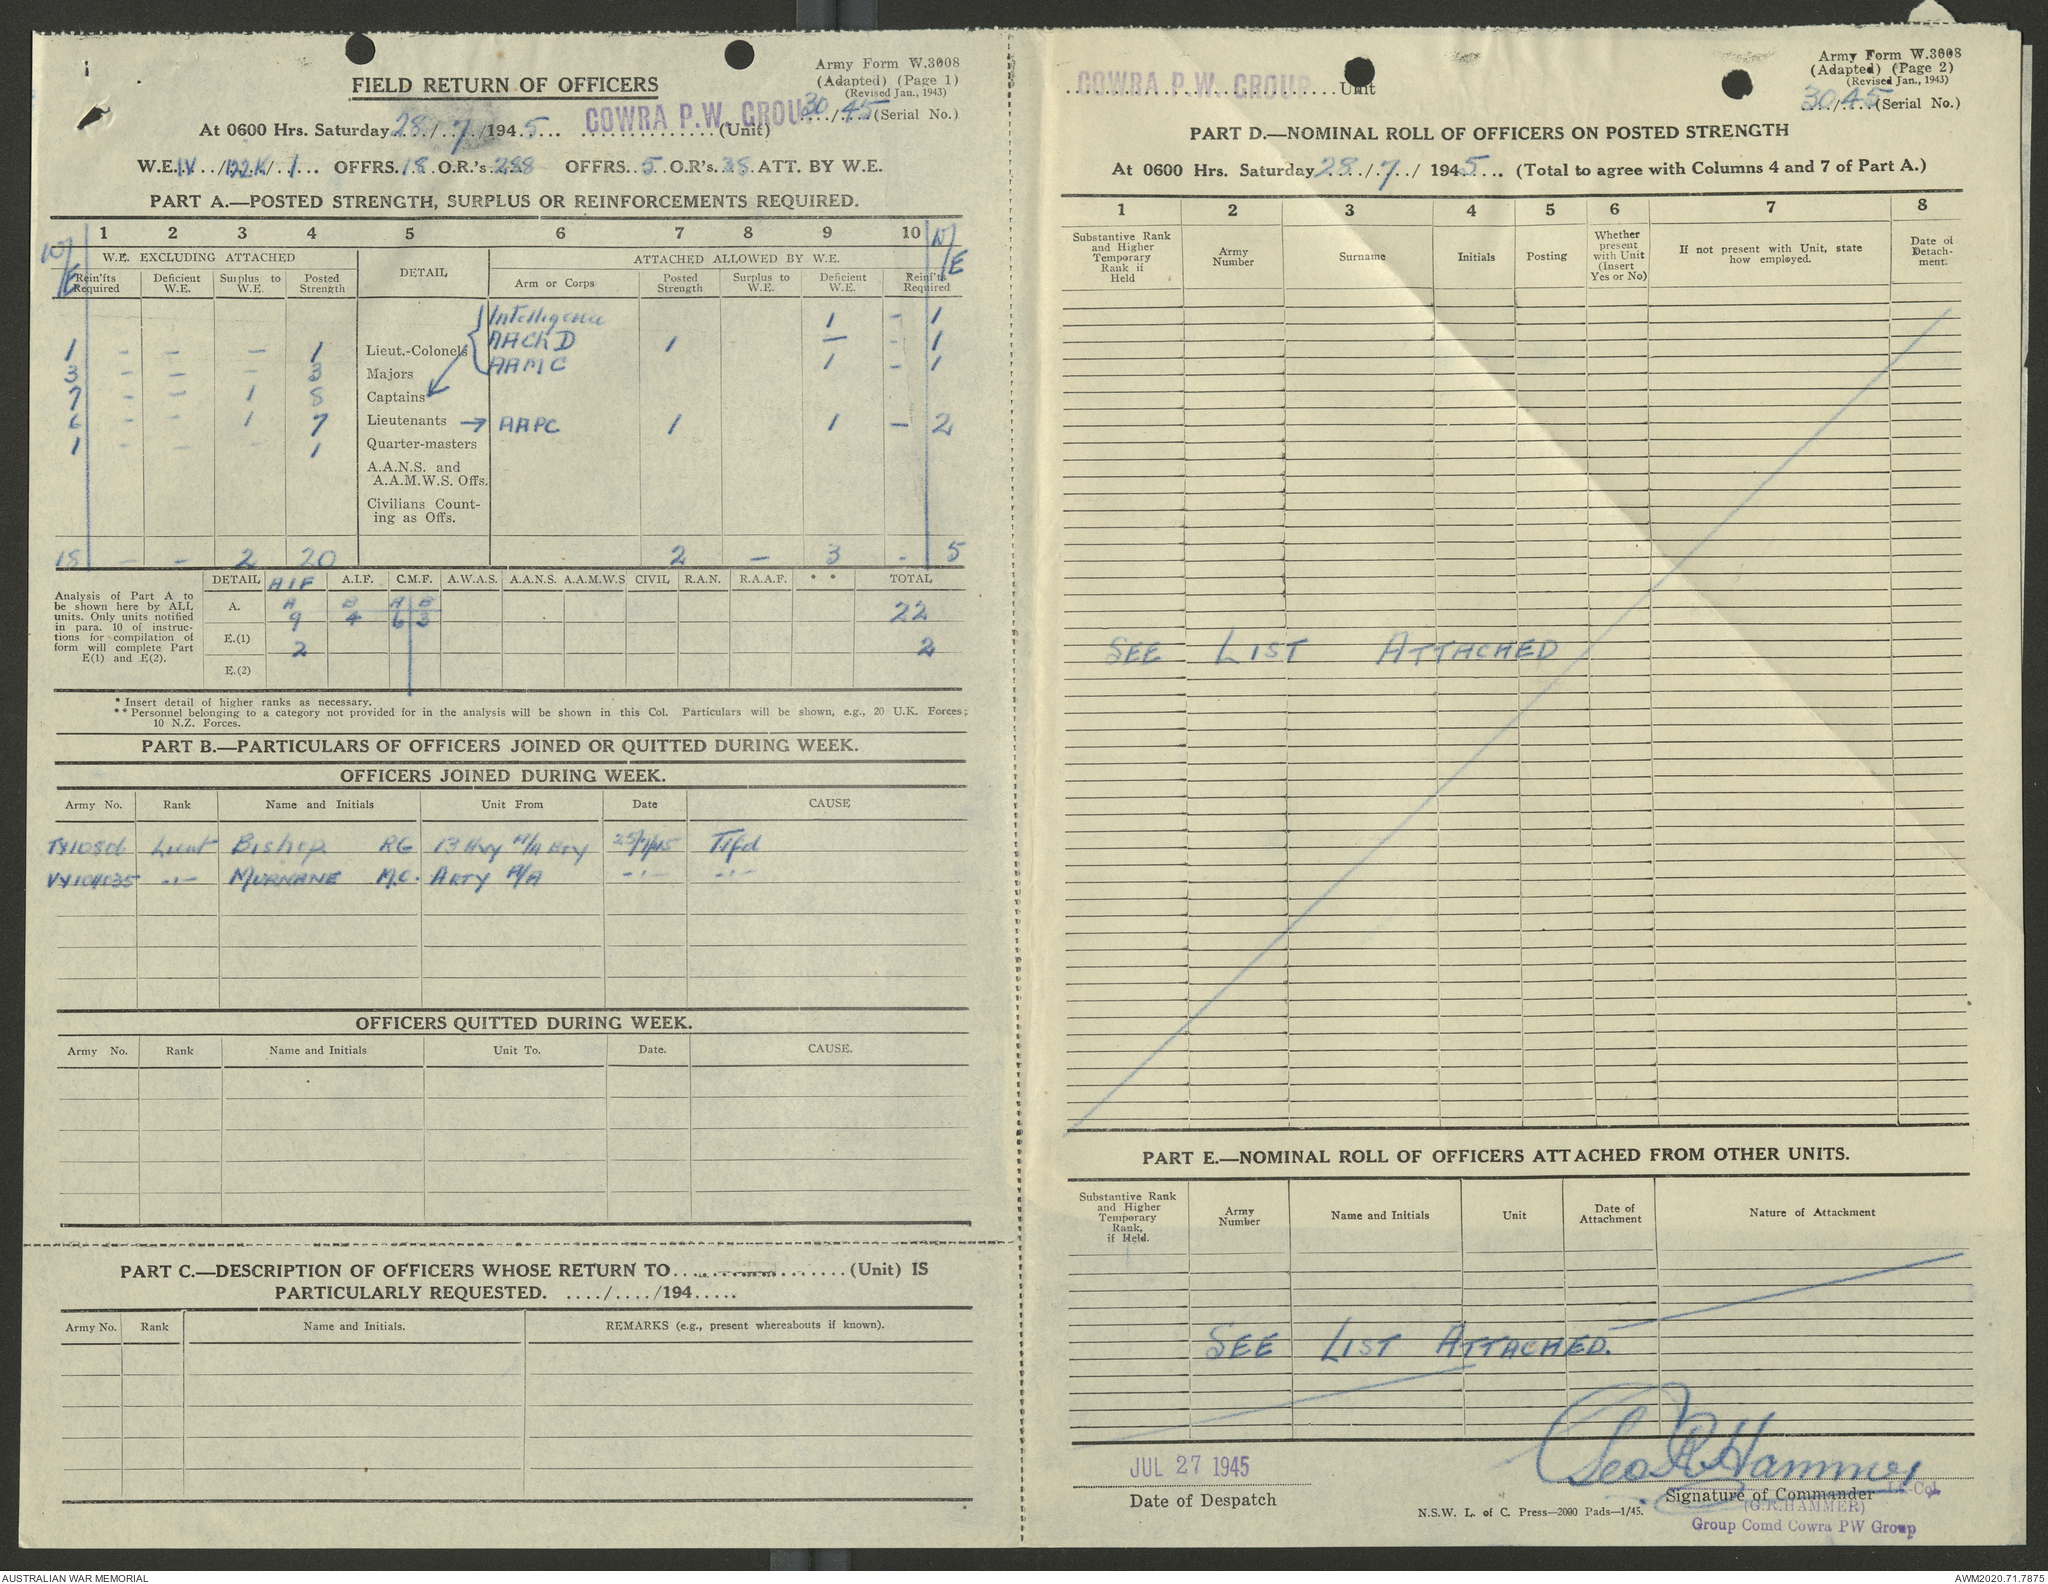 Army Form W.3008
(Adapted) (Page 1)
(Revised Jan., 1943)
FIELD RETURN OF OFFICERS
COWRA P.W. GROUP 30/45 (Serial No.)
At 0600 Hrs. Saturday 28/7/1945 (Unit)
W.E. IV/122K/1 OFFRS. 18 O.R.'s 288 OFFRS. 5 O.R's. 38 ATT. BY W.E.
PART A.—POSTED STRENGTH, SURPLUS OR REINFORCEMENTS REQUIRED.
W/E 1 2 3 4 5 6 7 8 9 10 W/E
W.E. EXCLUDING ATTACHED DETAIL ATTACHED ALLOWED BY W.E.
Rein'fts Required Deficient W.E. Surplus to W.E. Posted Strength Arm or Corps Posted Strength Surplus to W.E. Deficient W.E. Reinf'ts Required
Intelligence 1 - 1
1 - - - 1 Lieut.-Colonels AACH D 1 — 1
3 - - 3 Majors AAMC 1 - 1
7 - - 1 8 Captains
6 - - 1 7 Lieutenants → AAPC 1 1 - 2
1 - - - 1 Quarter-masters
A.A.N.S. and
A.A.M.W.S. Offs.
Civilians Count-
ing as Offs.
18 - - 2 20 2 - 3 - 5
DETAIL AIF A.I.F. C.M.F. A.W.A.S. A.A.N.S. A.A.M.W.S CIVIL R.A.N. R.A.A.F. * * TOTAL
Analysis of Part A to
be shown here by ALL
units. Only units notified
in para. 10 of instruc-
tions for compilation of
form will complete Part
E(1) and E(2).
A. A B A B
9 4 6 3 22
E.(1) 2 2
E.(2)
* Insert detail of higher ranks as necessary.
** Personnel belonging to a category not provided for in the analysis will be shown in this Col. Particulars will be shown, e.g., 20 U.K. Forces;
10 N.Z. Forces.
PART B.—PARTICULARS OF OFFICERS JOINED OR QUITTED DURING WEEK.
OFFICERS JOINED DURING WEEK.
Army No. Rank Name and Initials Unit From Date CAUSE
Lieut Bishop RG 13 Hvy A/A Bty 25/7/45 Tsfd
VX104035 -"- MURNANE M.C. ARTY A/A -"- -"-
OFFICERS QUITTED DURING WEEK.
Army No. Rank Name and Initials Unit To. Date. CAUSE.
PART C.—DESCRIPTION OF OFFICERS WHOSE RETURN TO.................(Unit) IS
PARTICULARLY REQUESTED. ..../..../194.....
Army No. Rank Name and Initials. REMARKS (e.g., present whereabouts if known).
Army Form W.3008
(Adapted) (Page 2)
(Revised Jan., 1943)
COWRA P.W. GROUP Unit
30/45 (Serial No.)
PART D.—NOMINAL ROLL OF OFFICERS ON POSTED STRENGTH
At 0600 Hrs. Saturday 28/7/1945 (Total to agree with Columns 4 and 7 of Part A.)
1 2 3 4 5 6 7 8
Substantive Rank and Higher Temporary Rank if Held Army Number Surname Initials Posting Whether present with Unit (Insert Yes or No) If not present with Unit, state how employed. Date of Detach-ment.
SEE LIST ATTACHED
PART E.—NOMINAL ROLL OF OFFICERS ATTACHED FROM OTHER UNITS.
Substantive Rank and Higher Temporary Rank, if Held. Army Number Name and Initials Unit Date of Attachment Nature of Attachment
SEE LIST ATTACHED.
JUL 27 1945
Geo R Hammer
Lt-Col
Date of Despatch Signature of Commander
N.S.W. L. of C. Press—2000 Pads—1/45.
(G.R.HAMMER)
Group Comd Cowra PW Group
AUSTRALIAN WAR MEMORIAL AWM2020.71.7875